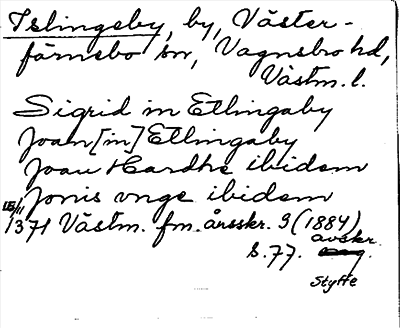 Islingeby, by, Väster-
färnebo sn, Vagnsbro hd,
Västm. l.
Sigrid in Etlingaby
Joan [in] Etlingaby
Joan Hardhe ibidem
Jonis vnge ibidem
1371 Västm. fm. årsskr. 9 (1884)
s. 77. avskr.
Styffe